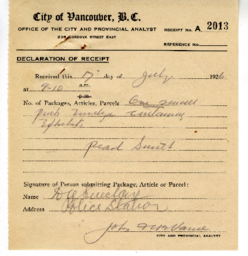 City of Vancouver, B.C.
OFFICE OF THE CITY AND PROVINCIAL ANALYST
RECEIPT No. A 2013
236 CORDOVA STREET EAST
REFERENCE No.
DECLARATION OF RECEIPT
Received this 17 day of July 1926
at 9-10
No. of Packages, Articles, Parcels One
Pink Envelope Containing
Pearl Smith
Signature of Person submitting Package, Article or Parcel:
Name
Address Police Station
John
CITY AND PROVINCIAL ANALYST